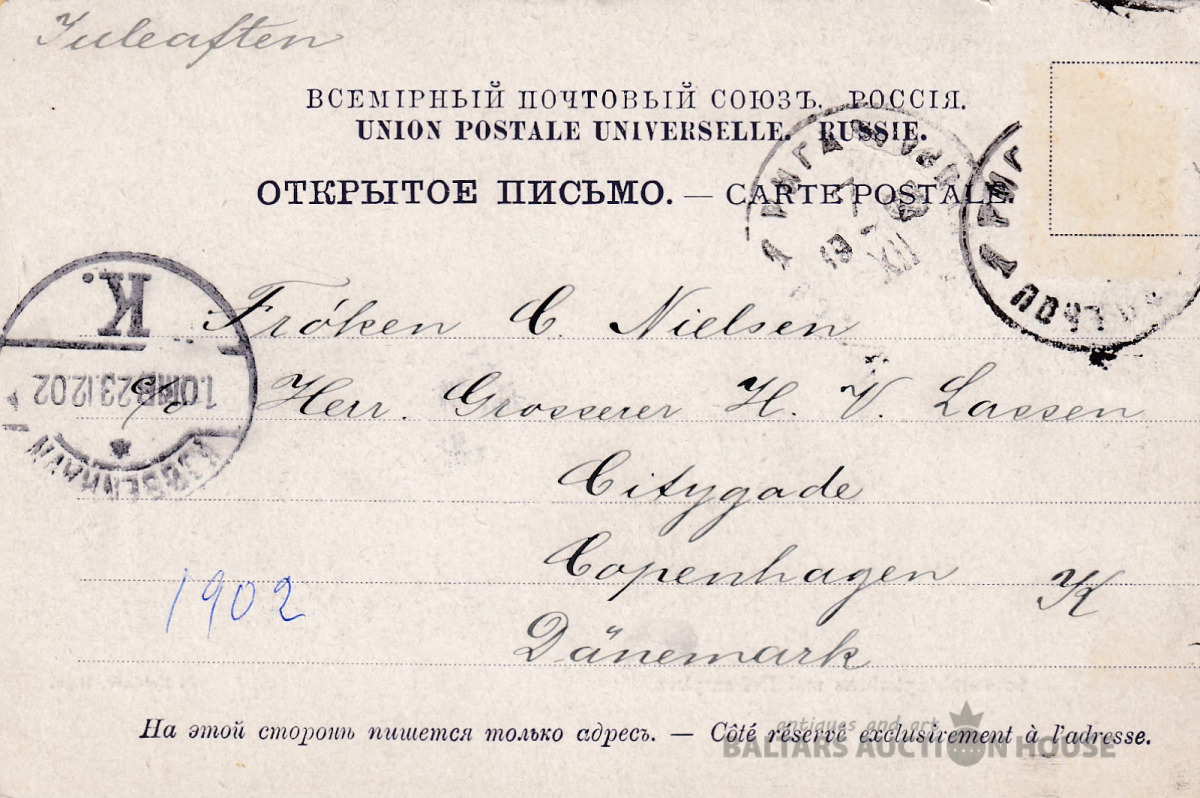 Juleaften
ВСЕМІРНЫЙ ПОЧТОВЫЙ СОЮЗЪ. РОССІЯ.
UNION POSTALE UNIVERSELLE. RUSSIE.
ОТКРЫТОЕ ПИСЬМО. — CARTE POSTALE.
1 РИГА
1 РИГ
K.
Frøken C. Nielsen
23.12.02
c/o Herr. Grosserer H. V. Lassen
KJØBENHAVN
Citygade
Copenhagen K
1902
Dänemark
На этой сторонѣ пишется только адресъ. — Côté réservé exclusivement à l'adresse.
antiques and art
BALTARS AUCTION HOUSE